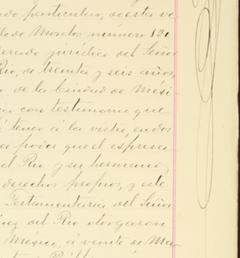 do particular, de esta ve
lo de Morelos número 120
derado jurídico del Señor
Rio, de treinta y seis años,
o de la Ciudad de Mexi
ca con testimonio que
tengo á la vista, en dos
poder que el expresa
el Rio y su hermano,
derecho propio, y este
Testamentaria del Señor
del Rio, otorgaron
Mexico, á veinte de Ma